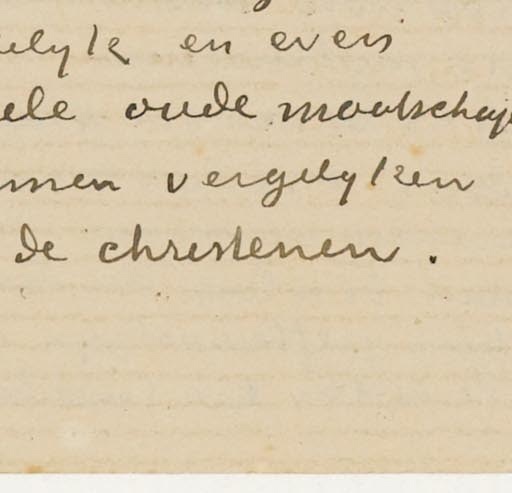 elyk en even
ele oude maatschap
men vergelyken
de christenen.